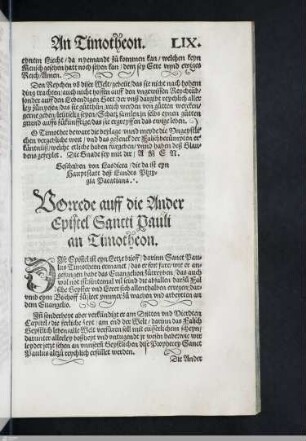 An Timotheon. LIX.
eynem Liecht / da nyemandt zů kommen kan / welchen keyn
Mensch gesehen hatt noch sehen kan / dem sey Eere vnnd ewiges
Reich / Amen.
Den Reychen vō diser Welt / gebeüt / das sie nicht nach hohem
ding trachten / auch nicht hoffen auff den vngewissen Reychtůb /
sonder auff den Lebendigen Gott / der vnß dargibt reychlich aller
ley zůnyessen / das sie gůthůn / reich werden von gůtten wercken /
gerne geben / behilfflich seyen / Schatz samlen / jn selbs eynen gůtten
grund auffs künfftige / das sie ergreyffen das ewige leben.
O Timothee beware die beylage vnnd meyde die Vngeystli
chen vergebliche wort / vnd das gezenck der Falsch berümpten er
käntnuß / welche etliche haben fürgeben / vnnd haben deß Glau
bens gefeylet. Die Gnade sey mit dir / AMEN.
Geschriben von Laodicea / die da ist eyn
Hauptstatt deß Landes Phry
gia Pacatiana.
Vorrede auff die Ander
Epistel Sancti Pauli
an Timotheon.
DIse Epistel ist eyn Letze brieff / darinn Sanct Pau
lus Timotheon ermanet / das er fort fare / wie er an
gefangen habe das Euangelion zůtreyben / das auch
wol not ist / syntemal vil seind die abfallen / vnd Fal
sche Geyster vnd Lerer sich allenthalben erregen / dar
umb eym Bischoff zů steet ymmer zů wachen vnd arbeyten an
dem Euangelio.
Jn sonderheyt aber verkündigt er am Dritten vnd Vierdten
Capitel / die ferliche zeyt / am end der Welt / darinn das Falsch
Geystlich leben alle Welt verfüren soll mit eusserlichem scheyn /
darunder allerley boßheyt vnd vntugendt jr wesen habe / wie
wir leyder jetzt sehen an vnnsern Geystlichen dise Prophecey Sanct
Paulus allzů reychlich erfüllet werden.
Die Ander